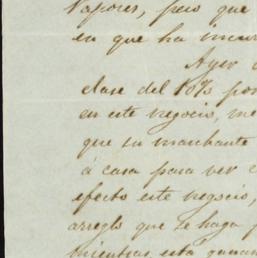 Vapores, pero que
en que ha incur
Ayer
clase del 10% por
en este negocio, me
que su marchante
á casa para ver
efecto este negocio,
arreglo que se haga p
mientras está ganan